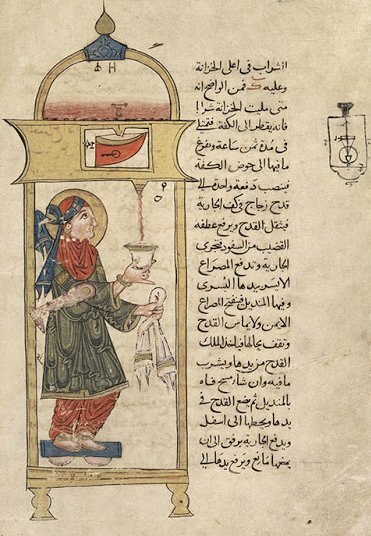 الشراب في اعلى الخزانة
وعليه فمن الواضح انه
متى مليت الخزانة شرابا
فانه يقطر الى الكفة فتمتلئ
في مدة ثمن ساعة ويفرغ
ما فيها الى حوض الكفة
فينصب دفعة واحدة الى
قدح زجاج في كف الجارية
فيثقل القدح ويرفع عطفه
القضيب من السفود فتجري
الجارية وتدفع المصراع
الايسر بيدها اليسرى
وفيها المنديل فينفتح المصراع
الايمن ولا يماس القدح
وتقف بحالها فياخذ الملك
القدح من يدها ويشرب
ما فيه وان شا مسح فاه
بالمنديل ثم يضع القدح في
يدها ويحطها الى اسفل
ويدفع الجارية برفق الى ان
يمنعها مانع ويرفع يدها الى